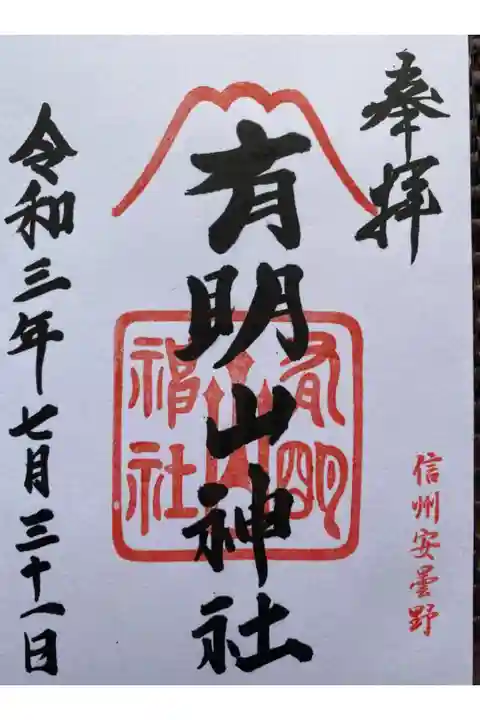 奉拝
有明山神社
有明山神社
信州安曇野
令和三年七月三十一日